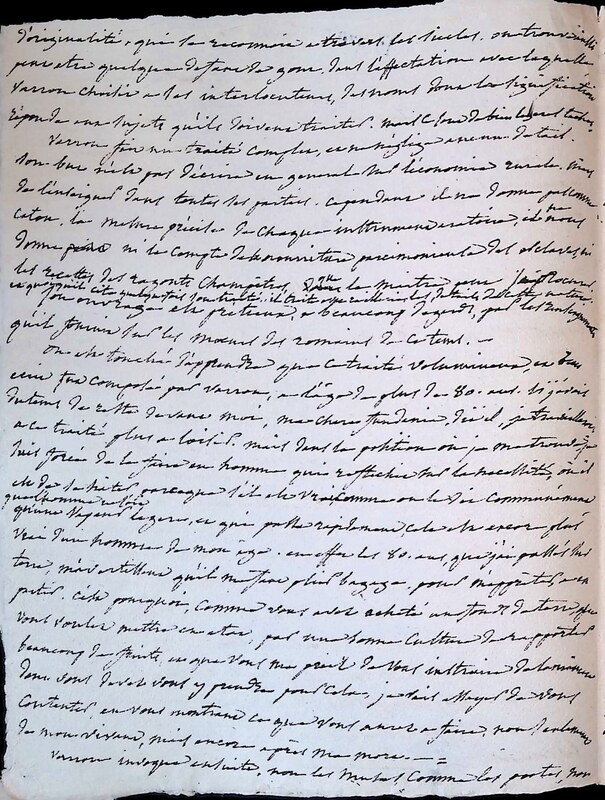 d'originalité, qui se reconnoit a travers les siecles. on trouve aussi
peut etre quelque defaut de gout, dans l'affectation avec laquelle
varron choisit a ses interlocuteurs, des noms dont la signification
réponde aux sujets qu'ils doivent traiter. mais c'est de bien
varron fit un traité complet, et ne néglige aucun detail.
son but n'est pas d'écrire en general sur l'économie rurale, mais
de l'enseigner dans toutes ses parties. cependant il ne donne pas comme
caton, la mesure précise de chaque instrument aratoire, il ne nous
donne ni le compte de la nourriture parcimonieuse des esclaves, ni
les recettes des ragouts champêtres, que le maitre peut se procurer
quelque fois son traité. il trait details de cette nature.
son ouvrage est précieux, a beaucoup d'egards, par les renseignemens
qu'il fournit sur les moeurs des romains de ce tems. —
on est touché d'apprendre que ce traité volumineux, et
ecrit fut composé par varron, a l'âge de plus de 80. ans. si j'avois
du tems de reste devant moi, ma chere fundania, dit il, je travaillerois
a ce traité plus a loisir. mais dans la position où je me trouve, je
suis forcé de le faire en homme qui réfléchit sur la necessité, où il
est de se hater, parceque s'il est vrai comme on le dit communément
que l'homme ne soit
qu'une vapeur legere, et qui passe rapidement, cela est encore plus
vrai d'un homme de mon âge. en effet les 80. ans, que j'ai passés sur
terre, m'avertissent qu'il me faut plier bagage, pour m'apprêter a en
partir. c'est pourquoi, comme vous avez acheté un fonds de terre, que
vous voulez mettre en etat, par une bonne culture de rapporter
beaucoup de fruits, et que vous me priez de vous instruire de la maniere
dont vous devez vous y prendre pour cela, je vais essayer de vous
contenter, en vous montrant ce que vous aurez a faire, non seulement
de mon vivant, mais encore après ma mort. — =
varron invoque ensuite, non les muses comme les poetes, non